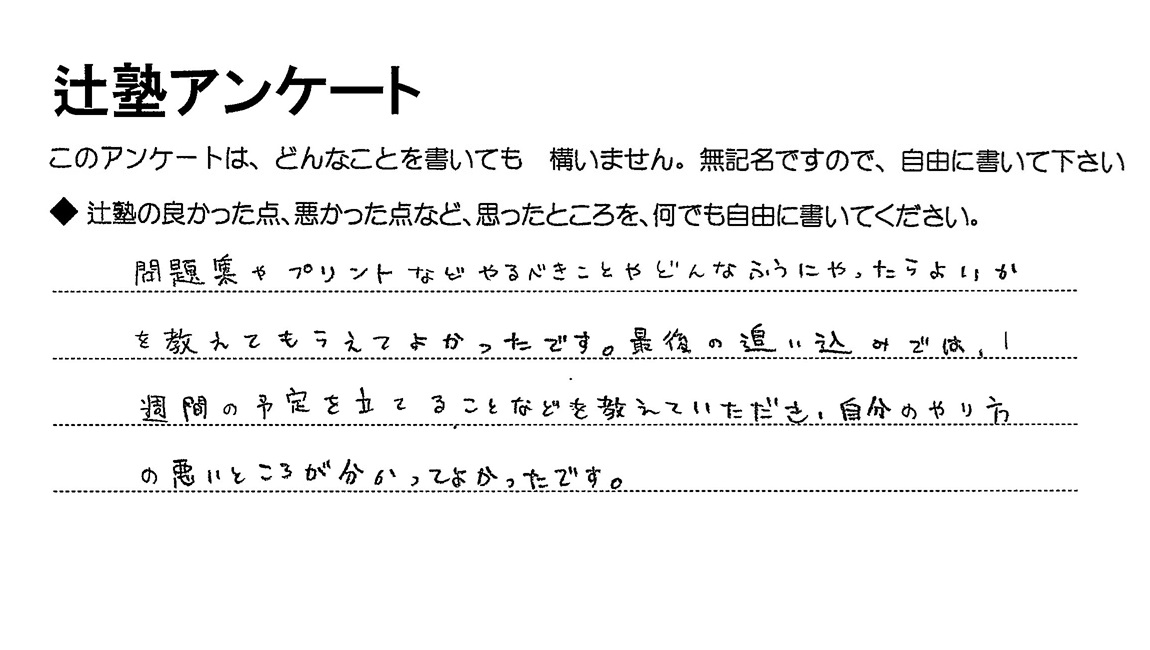 辻塾アンケート
このアンケートは、どんなことを書いても　構いません。無記名ですので、自由に書いて下さい
◆ 辻塾の良かった点、悪かった点など、思ったところを、何でも自由に書いてください。
問題集やプリントなどやるべきことやどんなふうにやったらよいか
を教えてもうえてよかったです。最後の追い込みでは、1
週間の予定を立てることなどを教えていただき、自分のやり方
の悪いところが分かってよかったです。